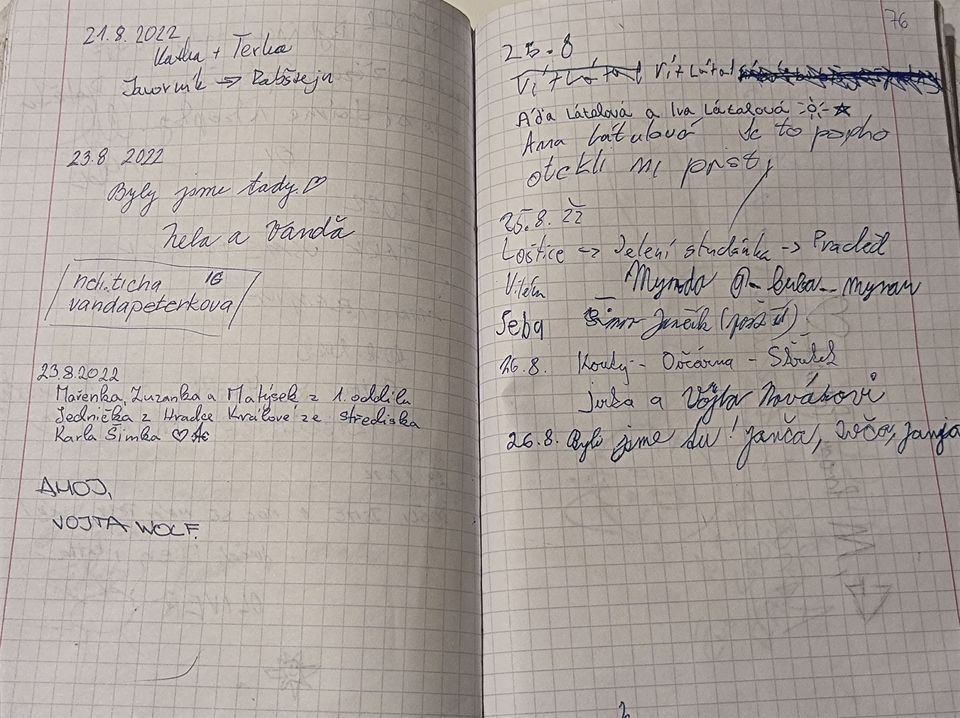 21.8.2022
Katka + Terka
Javorník → Rabštejn
23.8 2022
Byly jsme tady. ♡
Nela a Vanda
nch.ticha IG
vandapeterkova
23.8.2022
Mařenka, Zuzanka a Matýsek z 1. oddílu
Jednička z Hradce Králové ze střediska
Karla Šimka ♡
AHOJ,
VOJTA WOLF.
76
25.8
Vít Látal Vít Látal
Áďa Látalová a Iva Látalová
Anna Látalová Je to
otekli mi prsty
25.8. 22
Loštice → Jelení studánka → Praděd
Seba
26.8. Kouty - Ovčárna -
Jirka a Vojta Novákovi
26.8. Byli jsme tu! Janča, Ivča, Janja